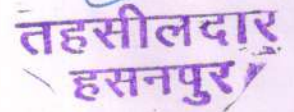 तहसीलदार
हसनपुर